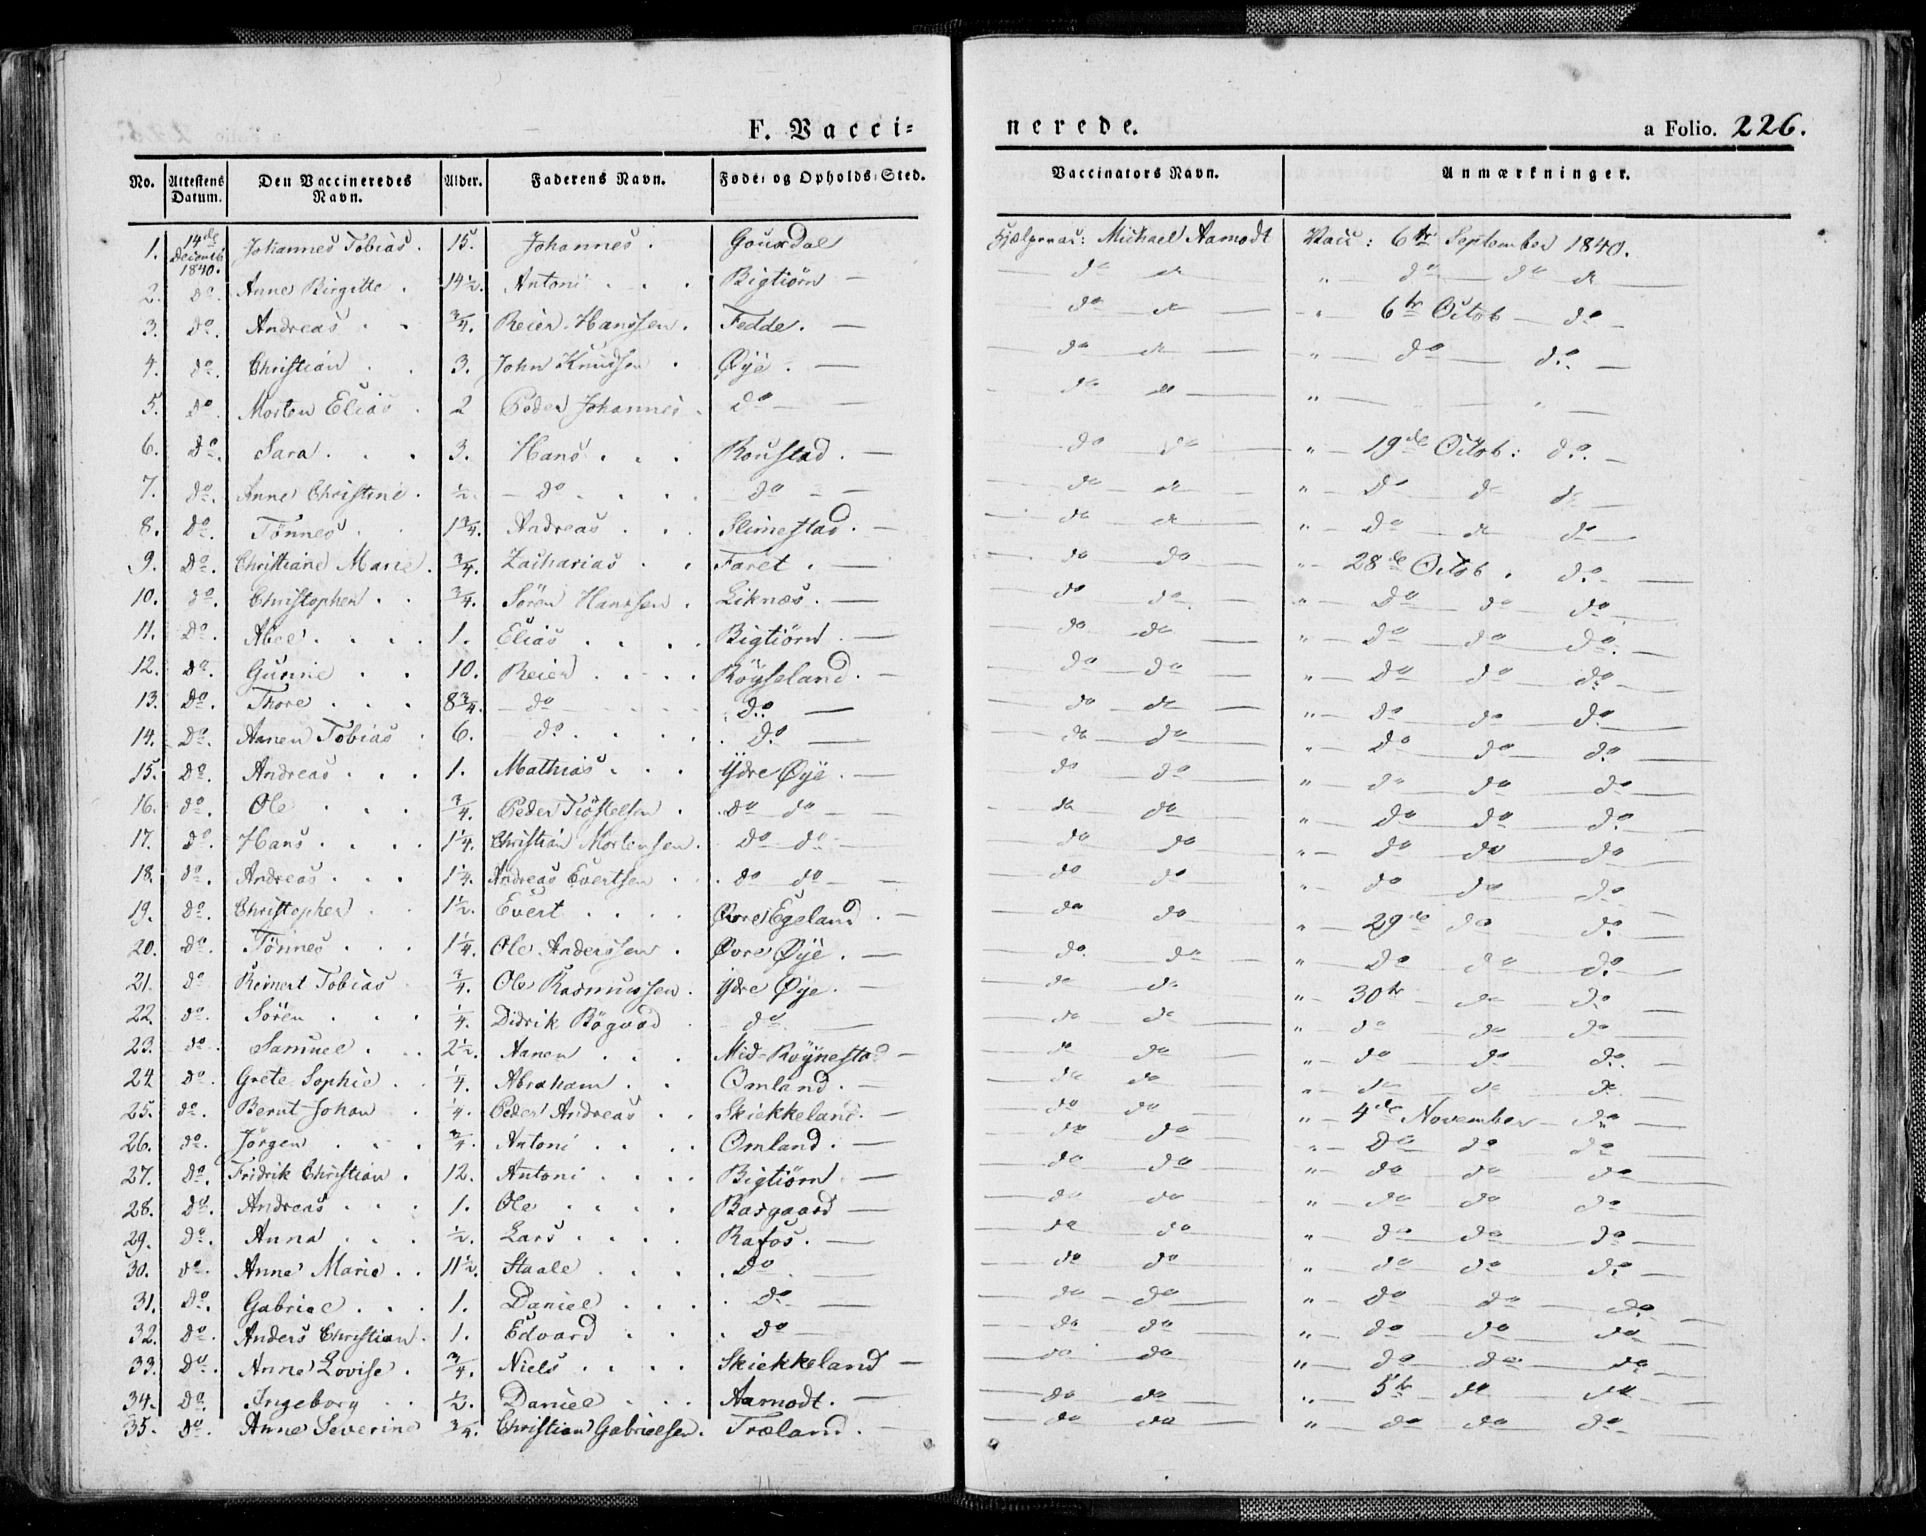 F. Vacci=
nerede.
a Folio. 226.
No. Attestens Datum. Den Vaccineredes Navn. Alder. Faderens Navn. Føde- og Opholds-Sted. Vaccinators Navn. Anmærkninger.
1. 14de Decemb 1840. Johannes Tobias. 15. Johannes. Gourdal Michael Aamodt Vacc: 6te September 1840.
2. do. Anne Birgitte. 14½. Antoni Bigtiørn — do do " do do do
3. do. Andreas ¾. Reier Hanssen. Fedde. — do do " 6te Octob — do
4. do. Christian 3. John Knudsen Øÿe. — do do " do do.
5. do. Morten Elias 2 Peder Johannes do — do do " "
6. do. Sara 3. Hans Roustad. — do do " 19de Octob: do.
7. do. Anne Christine. ½. do do do do " do do do
8. do. Tönnes 1¾. Andreas Slimestad. — do do " do do do
9. do. Christiane Marie. ¾. Zacharias Faret. — do do " 28de Octob. do.
10. do. Christopher ¾. Sören Hanssen. Liknæs. — do do " do do do
11. do. Abel 1. Elias Bigtiørn. — do do " do do do
12. do. Gunne 10. Reier Röÿseland. — do do " do do do
13. do. Thore 8¾. do do — do do " do do do
14. do. Aanen Tobias 6. do. do — do do " do do do
15. do. Andreas 1. Mathias Ÿdre Øÿe. — do do " do do do
16. do. Ole ¾. Peder Tiöstelsen do do do do " do do do
17. do. Hans 1¼. Christian Mortensen. do do do do " do do do
18. do. Andreas 1¼. Andreas Evertsen do do do do " do do do
19. do. Christopher 1½. Evert Øvre Egeland. — do do " 29de do do
20. do. Tönnes 1¼. Ole Anderssen. Øvre Øÿe. — do do " do do do
21. do Reinert Tobias ¾. Ole Rasmussen. Ÿdre Øÿe. — do do " 30te do do
22. do. Sören ¼. Didrik Bögvad do do do " do do do
23. do. Samuel 2½. Aanen Mid-Röÿnestad — do do " do do do
24. do. Grete Sophie ¼. Abraham Omland. — do do " do do do
25. do. Bernt Johan ¼. Peder Andreas Skiekkeland. — do do " 4de November do
26. do. Jörgen ¾. Antoni Omland. — do do " do do do
27. do. Fridrik Christian. 12. Antoni Bigtiørn — do do " do do do
28. do. Andreas 1. Ole Basgaard — do do " do do do
29. do. Anna ½. Lars Rafos. — do do " do do do
30. do. Anne Marie 11½. Staale do do do " do do do
31. do. Gabriel 1. Daniel do — do do " do do do
32. do. Anders Christian. 1. Edvard do — do do " do do do
33. do. Anne Lovise. ¾. Niels Skiekkeland — do do " do do do
34. do. Ingeborg ½. Daniel Aamodt. — do do " 5te do do
35. do. Anne Severine ¾. Christian Gabrielsen. Træland. — do do " do do do